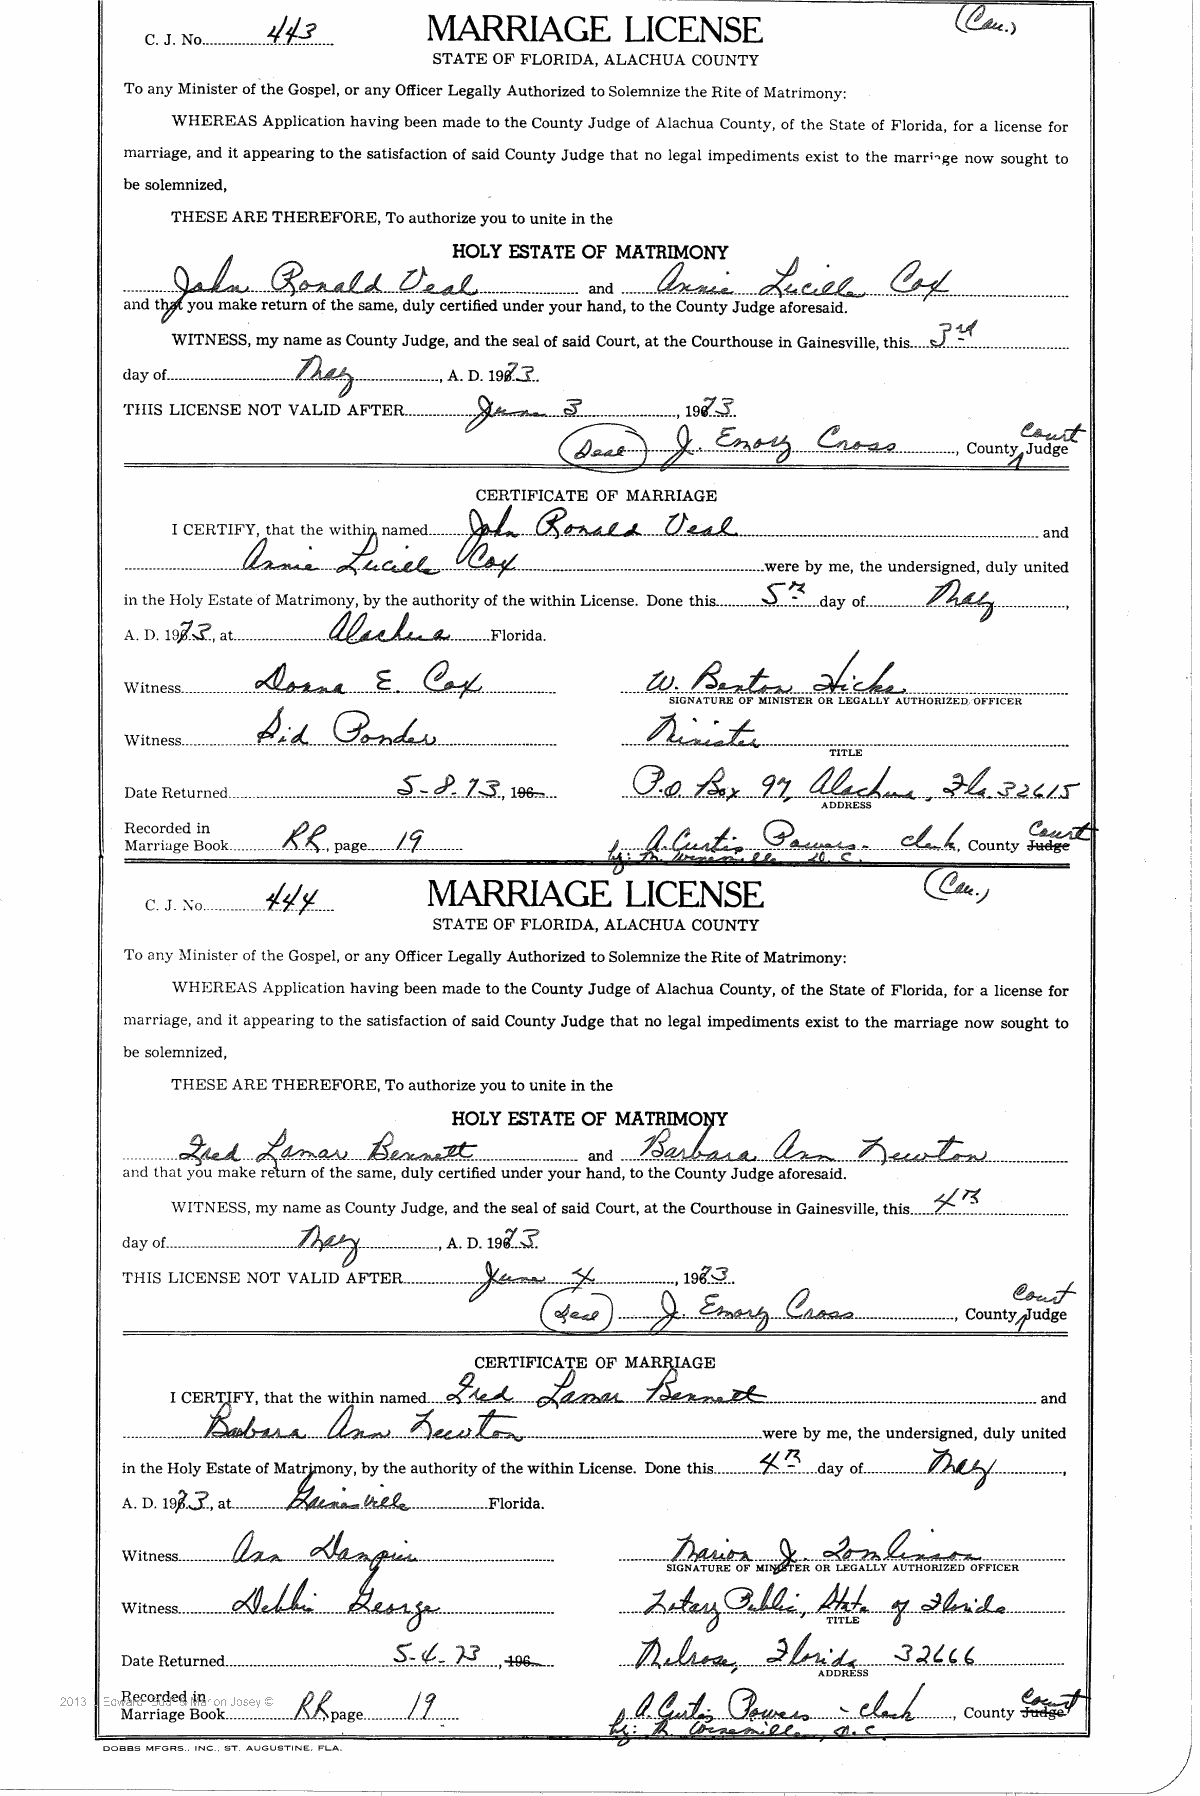 C. J. No. 443 MARRIAGE LICENSE (Cau.)
STATE OF FLORIDA, ALACHUA COUNTY
To any Minister of the Gospel, or any Officer Legally Authorized to Solemnize the Rite of Matrimony:
WHEREAS Application having been made to the County Judge of Alachua County, of the State of Florida, for a license for
marriage, and it appearing to the satisfaction of said County Judge that no legal impediments exist to the marriage now sought to
be solemnized,
THESE ARE THEREFORE, To authorize you to unite in the
HOLY ESTATE OF MATRIMONY
John Ronald Veal and Annie Lucille Cox
and that you make return of the same, duly certified under your hand, to the County Judge aforesaid.
WITNESS, my name as County Judge, and the seal of said Court, at the Courthouse in Gainesville, this 3rd
day of May, A. D. 1973.
THIS LICENSE NOT VALID AFTER June 3, 1973.
(Seal) J. Emory Cross, County Court Judge
CERTIFICATE OF MARRIAGE
I CERTIFY, that the within named John Ronald Veal and
Annie Lucille Cox were by me, the undersigned, duly united
in the Holy Estate of Matrimony, by the authority of the within License. Done this 5th day of May,
A. D. 1973, at Alachua Florida.
Witness Donna E. Cox W. Benton Hicks
SIGNATURE OF MINISTER OR LEGALLY AUTHORIZED OFFICER
Witness Sid Ponder Minister
TITLE
Date Returned 5-8-73, 196 P.O. Box 97, Alachua, Fla. 32615
ADDRESS
Recorded in
Marriage Book RR, page 19 A. Curtis Powers - clerk, County Court Judge
by: M. D. C.
C. J. No. 444 MARRIAGE LICENSE (Cau.)
STATE OF FLORIDA, ALACHUA COUNTY
To any Minister of the Gospel, or any Officer Legally Authorized to Solemnize the Rite of Matrimony:
WHEREAS Application having been made to the County Judge of Alachua County, of the State of Florida, for a license for
marriage, and it appearing to the satisfaction of said County Judge that no legal impediments exist to the marriage now sought to
be solemnized,
THESE ARE THEREFORE, To authorize you to unite in the
HOLY ESTATE OF MATRIMONY
Fred Lamar Bennett and Barbara Ann Newton
and that you make return of the same, duly certified under your hand, to the County Judge aforesaid.
WITNESS, my name as County Judge, and the seal of said Court, at the Courthouse in Gainesville, this 4th
day of May, A. D. 1973.
THIS LICENSE NOT VALID AFTER June 4, 1973.
(Seal) J. Emory Cross, County Court Judge
CERTIFICATE OF MARRIAGE
I CERTIFY, that the within named Fred Lamar Bennett and
Barbara Ann Newton were by me, the undersigned, duly united
in the Holy Estate of Matrimony, by the authority of the within License. Done this 4th day of May,
A. D. 1973, at Gainesville Florida.
Witness Ann Dampier Marion J. Tomlinson
SIGNATURE OF MINISTER OR LEGALLY AUTHORIZED OFFICER
Witness Debbie George Notary Public, State of Florida
TITLE
Date Returned 5-4-73, 196 Melrose, Florida 32666
ADDRESS
Recorded in
Marriage Book RR page 19 A. Curtis Powers - clerk, County Court Judge
by: M. D. C.
DOBBS MFGRS., INC., ST. AUGUSTINE, FLA.